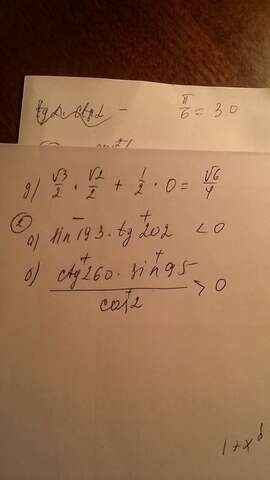 tgα · ctgα –
π/6 = 3.0
g) √3/2 · √2/2 + 1/2 · 0 = √6/4
②
а) sin 193 · tg 202 < 0
б) ctg 260 · sin 95 / cos 2 > 0
1 + x